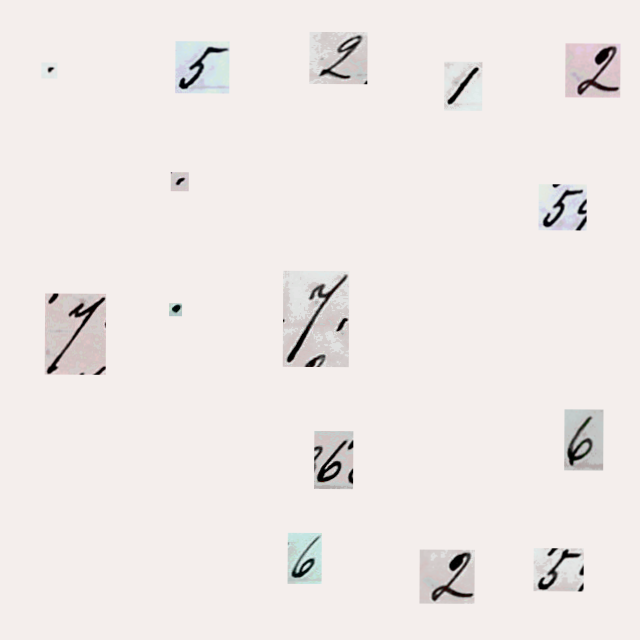 . 5 2 1 2
. 5
7 . 7
6 6
6 2 5